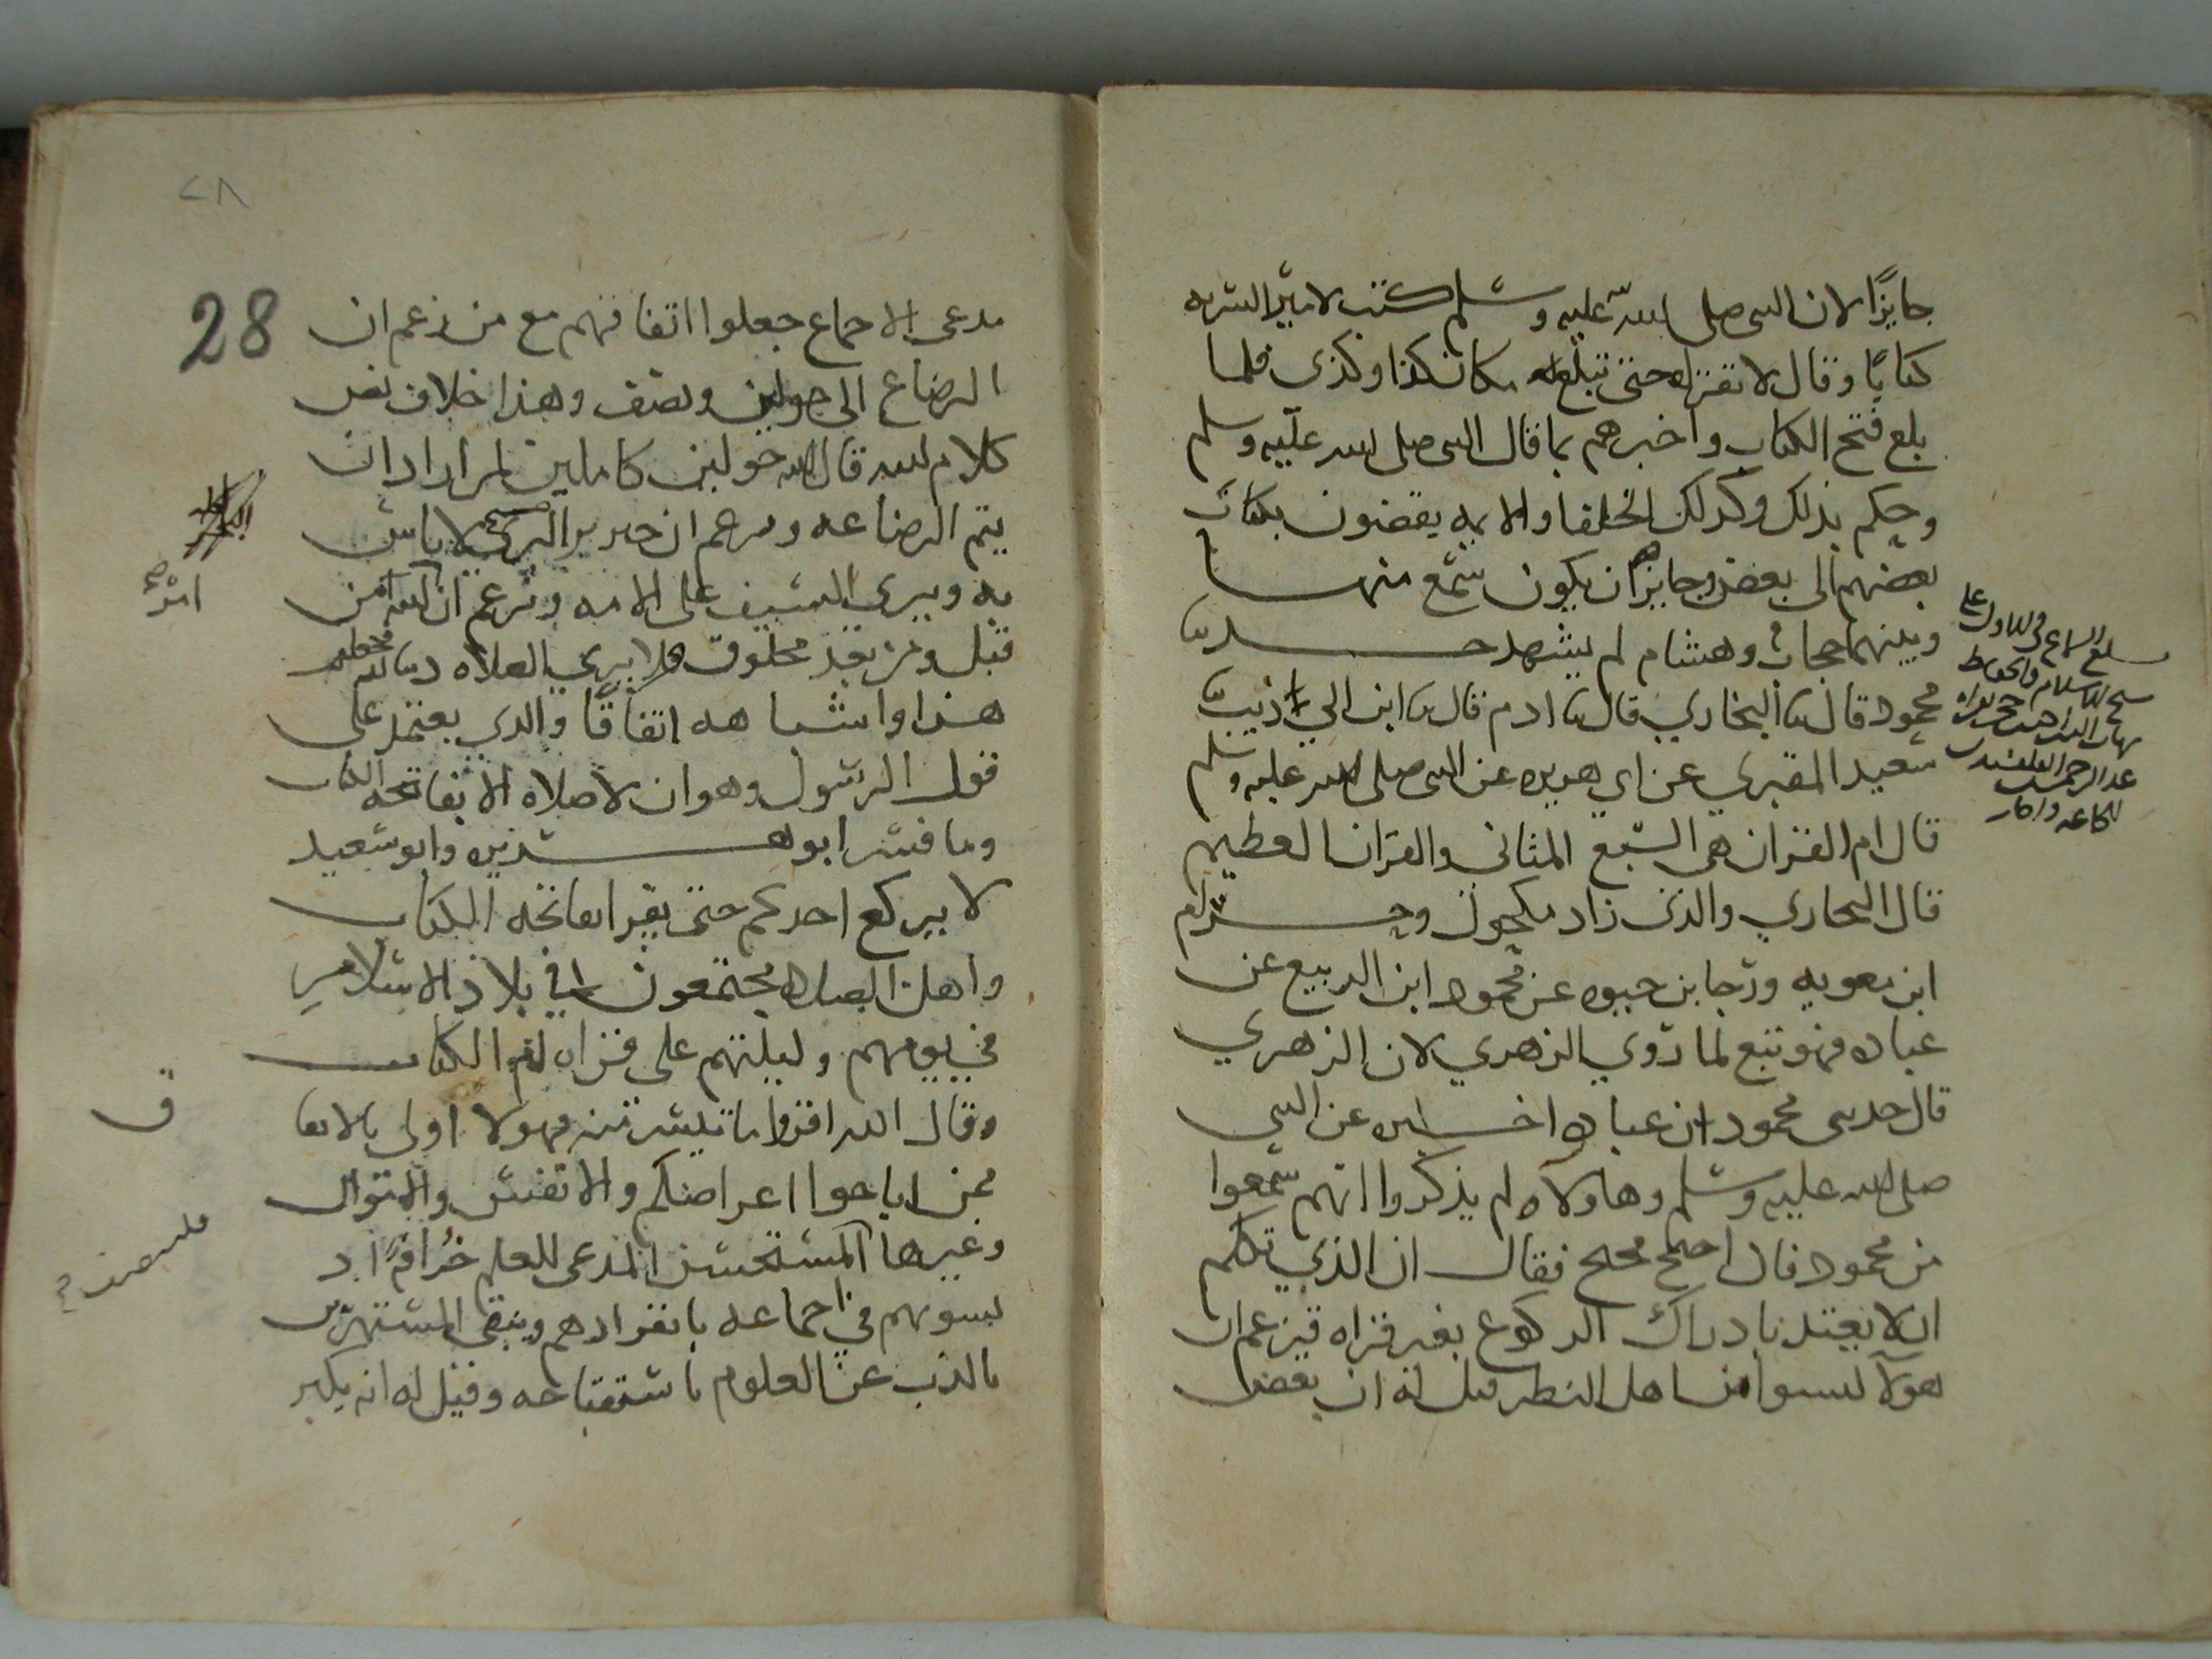 جايزًا لان النبى صلى الله عليه وسلم كتب لامير السريه
كتابًا وقال لا تقراه حتى تبلغ مكان كذا وكذى فلما
بلغ فتح الكتاب واخبرهم بما قال النبى صلى الله عليه وسلم
وحكم بذلك وكذلك الخلفا والايمه يقضون بكتاب
بعضهم الى بعض وجايز ان يكون سمع منهما
وبينهما حجاب وهشام لم يشهد حدثنا
محمود قال ثنا البخاري قال ثنا ادم قال ثنا ابن ابي ذيب ثنا
سعيد المقبري عن ابي هريره عن النبى صلى الله عليه وسلم
قال ام القران هى السبع المثانى والقران العظيم
قال البخاري والذى زاد مكحول وحزام
ابن معويه ورجا بن حيوه عن محمود ابن الربيع عن
عباده فهو تبع لما روي الزهري لان الزهري
قال حدثنى محمود ان عباده اخبره عن النبى
صلى الله عليه وسلم وهاولاء لم يذكروا انهم سمعوا
من محمود فان احتج محتج فقال ان الذي تكلم
ان لا يعتد بادراك الركوع بغير قراه فيزعم ان
هولآ ليسوا من اهل النظر قيل له ان بعض
بلغ السماع فى الاول على
شيخ الاسلام والحفاظ
عبد الرحمن القلقشندى
٢٨
28
مدعى الاجماع جعلوا اتفاقهم مع من زعم ان
الرضاع الى حولين ونصف وهذا خلاف نص
كلام الله قال الله حولين كاملين لمن اراد ان
يتم الرضاعه ويزعم ان خنزير البرى لا باس
به ويرى السيف على الامه ويزعم ان امر الله من
قبل ومن بعد مخلوق فلا يري الصلاه دينا
هذا واشباهه اتفاقًا والذي يعتمد على
قول الرسول وهو ان لا صلاه الا بفاتحه الكتاب
وما فسر ابو هريره وابو سعيد
لا يركع احدكم حتى يقرا بفاتحه الكتاب
واهل الصلاه مجتمعون في بلاد الاسلام
في يومهم وليلتهم على قراه ام الكتاب
وقال الله اقروا ما تيسر منه فهولا اولى بالاتفا
ق
ممن اباحوا اعراضكم والانفس والاموال
وغيرها المستحسن المدعى للعلم خرافه اذ
بالذب عن العلوم باستقباحه وقيل له انه يكبر